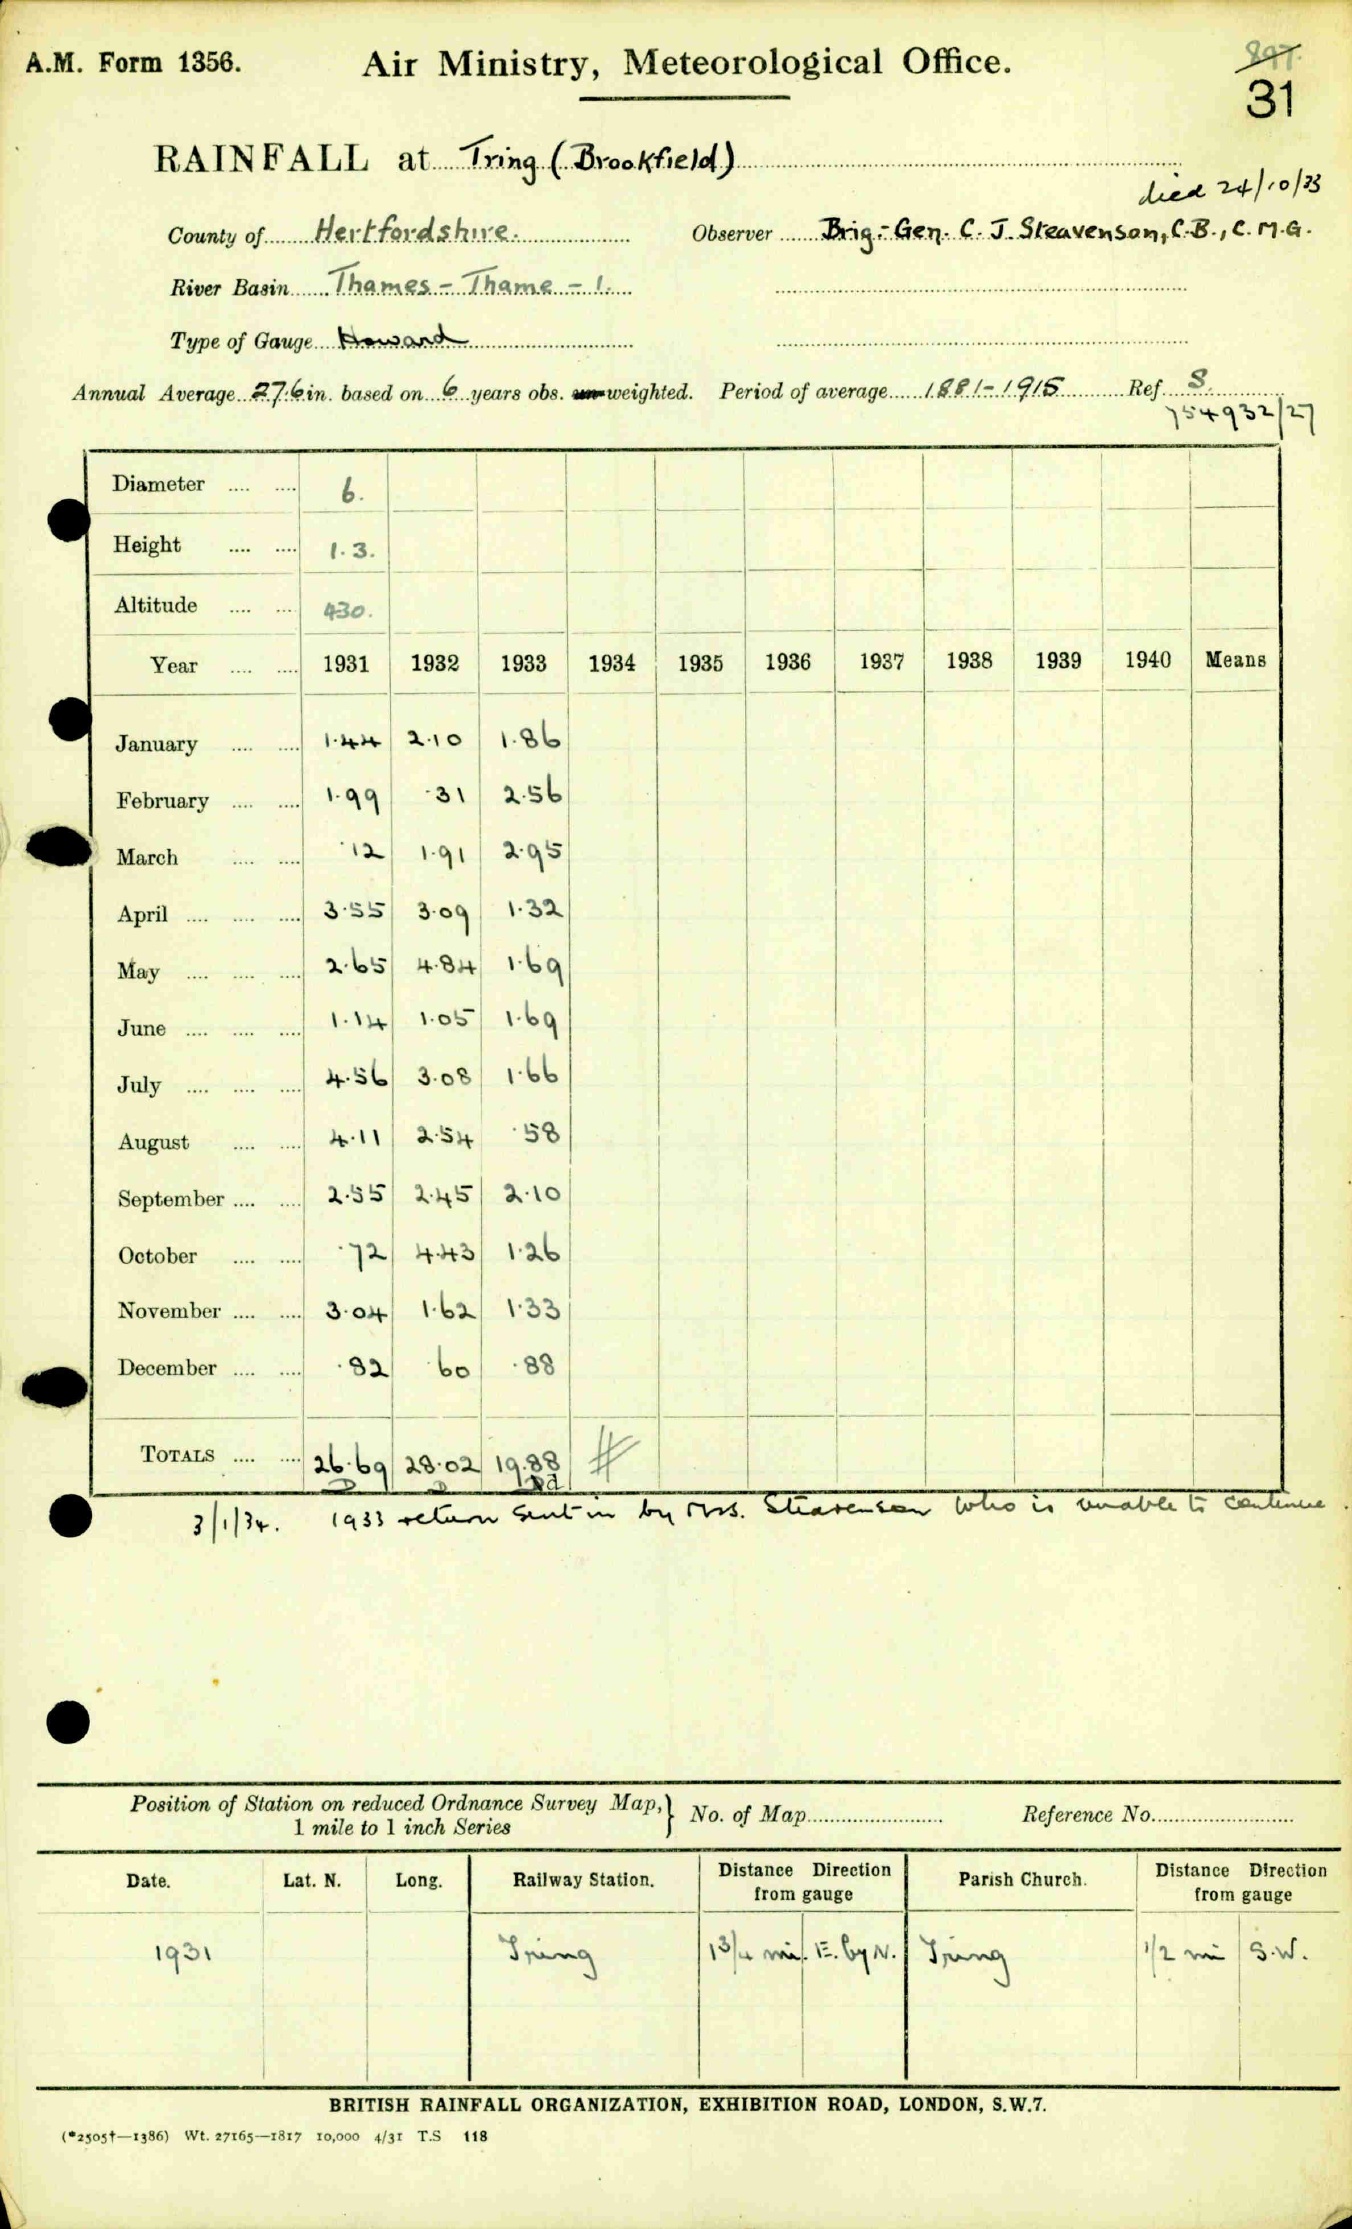 A.M. Form 1356.
Air Ministry, Meteorological Office.
897.
31
RAINFALL at Tring (Brookfield)
died 24/10/33
County of Hertfordshire. Observer Brig.-Gen. C. J. Steavenson, C.B., C.M.G.
River Basin Thames - Thame - 1.
Type of Gauge Howard
Annual Average 27.6 in. based on 6 years obs. un-weighted. Period of average 1881-1915 Ref. S.
754932/27
Diameter .... .... 6.
Height .... .... 1.3.
Altitude .... .... 430.
Year .... .... 1931 1932 1933 1934 1935 1936 1937 1938 1939 1940 Means
January .... .... 1.44 2.10 1.86
February .... .... 1.99 .31 2.56
March .... .... .12 1.91 2.95
April .... .... .... 3.55 3.09 1.32
May .... .... .... 2.65 4.84 1.69
June .... .... .... 1.14 1.05 1.69
July .... .... .... 4.56 3.08 1.66
August .... .... 4.11 2.54 .58
September .... .... 2.55 2.45 2.10
October .... .... .72 4.43 1.26
November .... .... 3.04 1.62 1.33
December .... .... .82 .60 .88
TOTALS .... .... 26.69 28.02 19.88
3/1/34. 1933 return sent in by Mrs. Steavenson who is unable to continue.
Position of Station on reduced Ordnance Survey Map, } No. of Map Reference No.
1 mile to 1 inch Series
Date. Lat. N. Long. Railway Station. Distance Direction from gauge Parish Church. Distance Direction from gauge
1931 Tring 1 3/4 mi. E. by N. Tring 1/2 mi S.W.
BRITISH RAINFALL ORGANIZATION, EXHIBITION ROAD, LONDON, S.W.7.
(*2505†—1386) Wt. 27165—1817 10,000 4/31 T.S 118